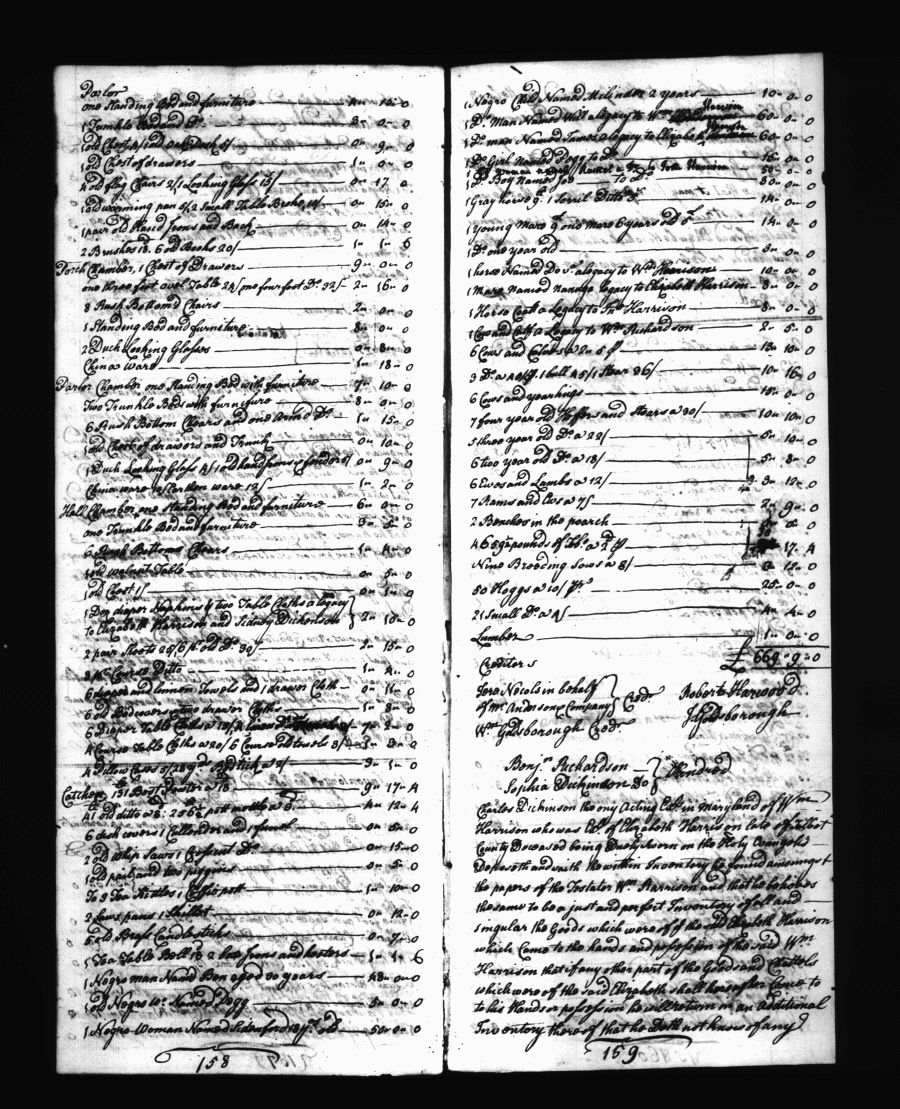 Parlor
one Standing Bed and furniture 15 0
1 Trumble Bed and Do. 0 0
1 old Chest 4/ 1 old Oak Desk 5/ 0 9 0
1 old Chest of drawers 1 0 0
4 old flag Chairs 2/ 1 Looking Glass 0 17 0
1 old warming pan 5/ 2 Small Table 0 15 0
1 pair old Hand Irons and 0 14 0
2 Brushes 18. 6 old Books 20/ 1 1 6
Porch Chamber, 1 Chest of Drawers 9 0 0
one three foot oval Table 24/ one four foot Do. 32/ 2 16 0
8 Rush Bottom'd Chairs 2 0 0
1 Standing Bed and furniture 8 0 0
2 Duck Looking Glasses 0 8 0
China Ware 1 18 0
Parlor Chamber one Standing Bed with furniture 7 10 0
Two Trunkle Beds with furniture 8 0 0
6 Rush Bottom Chears and one Arm'd Do. 1 15 0
1 old Chest of drawers and Trunk 0 10 0
1 Duck Looking Glass 4/ 1 old hand Irons & fenders 0 9 0
China ware Earthen ware 12/ 1 2 0
Hall Chamber, one Standing Bed and furniture 6 0 0
one Trunkle Bed and furniture
6 Rush Bottom Chears 1 4 0
1 old walnut Table 0 5 0
1 old Chest 1/ 0 1 0
1 Doz diaper Napkins & two Table Cloths a legacy
to Elizabeth Harrison and Sidney Dickenson 2 10 0
2 pair Sheets 25/ 6 ps. old Do. 30/ 2 15 0
8 ps. Course Ditto 1 4 0
6 diaper and Linnen Towels and 1 drawer Cloth 0 0
6 old Bed covers two drawer Cloths 1 8 0
6 Diaper Table Cloths 0
4 Course Table Cloths a 20/ 6 Course old towels 8/ 0
4 Pillow Cases 5/ 28 yd. Bed tick a 2/ 3 1 0
Catchen, 131 Best Pewter a 18 9 17 4
41 old ditto a 8: 256 pott mettle 4 12 4
6 dish covers 1 Cullender and 1 funel 0 0
2 old Whip Saws 1 Crosscut Do. 0 15 0
1 old pail and two piggins 0 5 0
To 3 Tea Kittles 1 Coffe pott 1 10 0
2 Saws pans 1 Skillet 0 12 0
5 old Brass Candlesticks 0 7 0
1 Tea Table Bell 10 2 box Irons and heaters 1 1 6
1 Negro man Namd Ben aged 30 years 48 0 0
1 old Negro Wo. Named Pegg 5 0 0
1 Negro Woman Named yr. old 50 0 0
158
1 Negro Child Named Melinder 2 years 10 0 0
1 Do. Man Named Will a legacy to Wm. Harrison 60 0 0
1 Do. man Named a legacy to Elizabeth 60 0 0
1 Do. Girl Named Pegg to Do. 16 0 0
1 woman named Harrison 50 0 0
1 Do. Boy Named Job 30 0 0
1 Gray horse 9. 1 Sorril Ditto 14 0 0
1 young Mare & one Mare 6 years old 14 0 0
1 Do. one year old 3 0 0
1 horse Named a legacy to Wm. Harrison 10 0 0
1 Mare Named a legacy to Elizabeth Harrison 8 0 0
1 Horse Coalt a Legacy to Jno. Harrison 8 0 0
1 Cow and Calf a Legacy to Wm. Richardson 2 5 0
6 Cows and Calves a 2 5 13 10 0
3 Do. a 40/ 1 bull 45/ 1 Stear 36/ 10 16 0
6 Cows and yearlings 15 0 0
7 four year old Heffers and Stears a 30/ 10 10 0
5 three year old Do. a 22/ 5 10 0
6 two year old Do. a 18/ 5 8 0
6 Ewes and Lambs a 12/ 3 12 0
7 Rams and Ews a 7/ 2 9 0
2 Benches in the poarch 0 0
465 gr. pounds of Tob. a 2d. 17 4
Nine Breeding Sows a 8/ 3 12 0
50 Hoggs a 10/ 25 0 0
21 Small Do. a 4/ 4 4 0
Lumber 1 0 0
£ 669 9 0
Creditors
Jere Nicols in behalf
of Mr. Anderson & Company } Cred. Robert Harwood
Wm. Goldsborough Cred. J Goldsborough
Benj. Richardson
Sophia Dickinson } Kindred
Charles Dickinson the only Acting Exr. in Maryland of Wm
Harrison who was Exr. of Elizabeth Harrison late of Talbot
County Deceased being Duely Sworn on the Holy Evangels
Deposeth and saith the within Inventory he found amongst
the papers of the Testator Wm. Harrison and that he beleives
the same to be a just and perfect Inventory of all and
singular the Goods which were of the said Elizabeth Harrison
which Came to the hands and possession of the said Wm
Harrison that if any other part of the Goods and Chattels
which were of the said Elizabeth shall hereafter Come to
to his hands or possession he will return in an Additional
Inventory thereof that he Doth not know of any
159